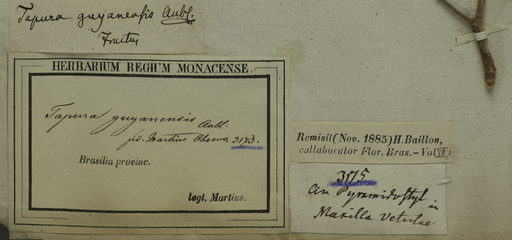 Tapura guyanensis Aubl.
Fructus
HERBARIUM REGIUM MONACENSE.
Tapura guyanensis Aubl.
Martius Observ. 3173.
Brasilia provinc.
legt. Martius.
Remisit (Nov. 1885) H. Baillon,
collaborator Flor. Bras. – Vol.
3175
an in
Maxilla vetulae